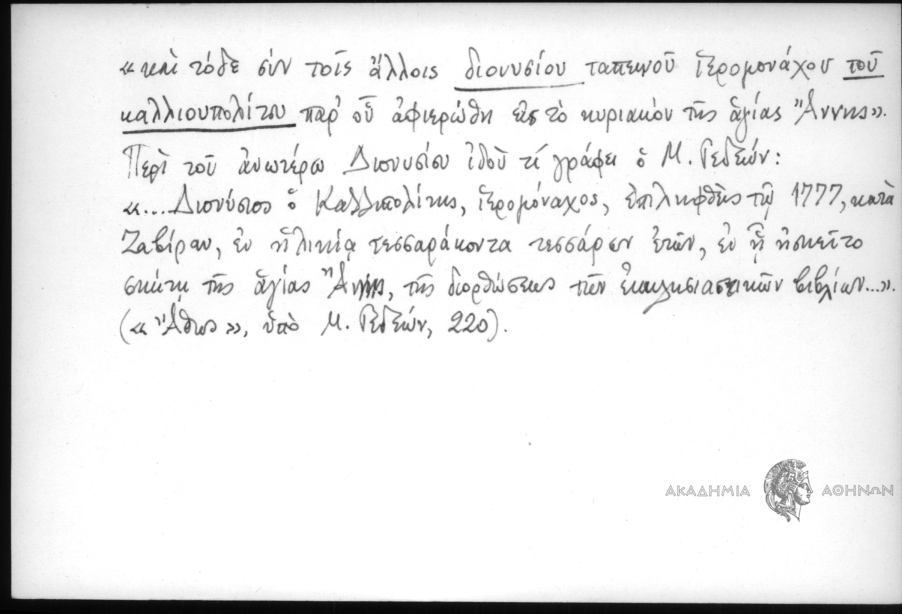 «καὶ τόδε σύν τοῖς ἄλλοις διονυσίου ταπεινοῦ ἱερομονάχου τοῦ
καλλιουπολίτου παρ' οὗ ἀφιερώθη εἰς τὸ κυριακὸν τῆς ἁγίας Ἄννης».
Περὶ τοῦ ἀνωτέρω Διονυσίου ἰδοὺ τί γράφει ὁ Μ. Γεδεών:
«...Διονύσιος ὁ Καλλιπολίτης, ἱερομόναχος, ἐπιληφθεὶς τῷ 1777, κατὰ
Ζαβίραν, ἐν ἡλικίᾳ τεσσαράκοντα τεσσάρων ἐτῶν, ἐν ᾗ ἠσκεῖτο
σκήτῃ τῆς ἁγίας Ἄννης, τῆς διορθώσεως τῶν ἐκκλησιαστικῶν βιβλίων...».
(«Ἄθως», ὑπὸ Μ. Γεδεών, 220).
ΑΚΑΔΗΜΙΑ ΑΘΗΝΩΝ